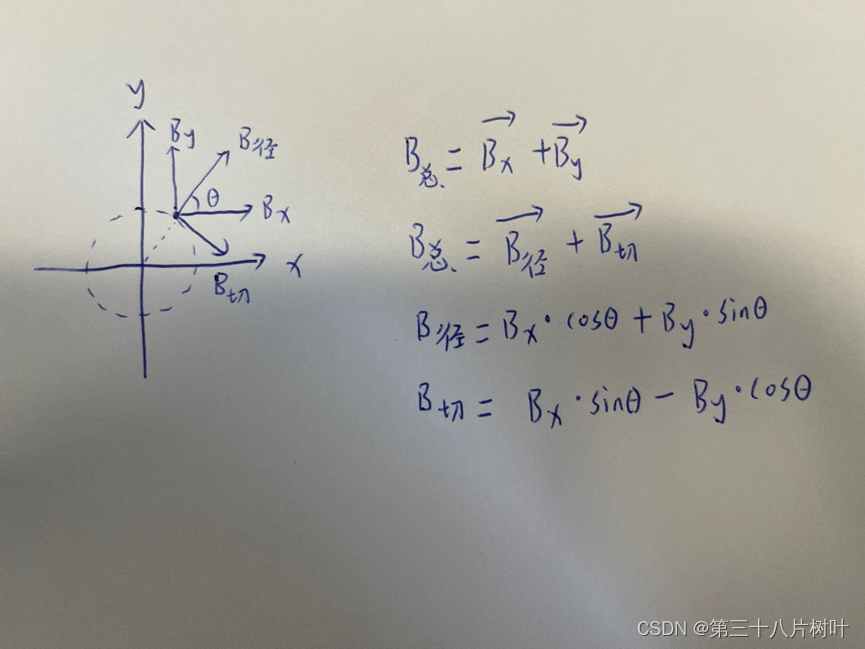 y
By
B径
θ
Bx
x
B切
B总 = Bx + By
B总 = B径 + B切
B径 = Bx · cosθ + By · sinθ
B切 = Bx · sinθ - By · cosθ
CSDN @第三十八片树叶